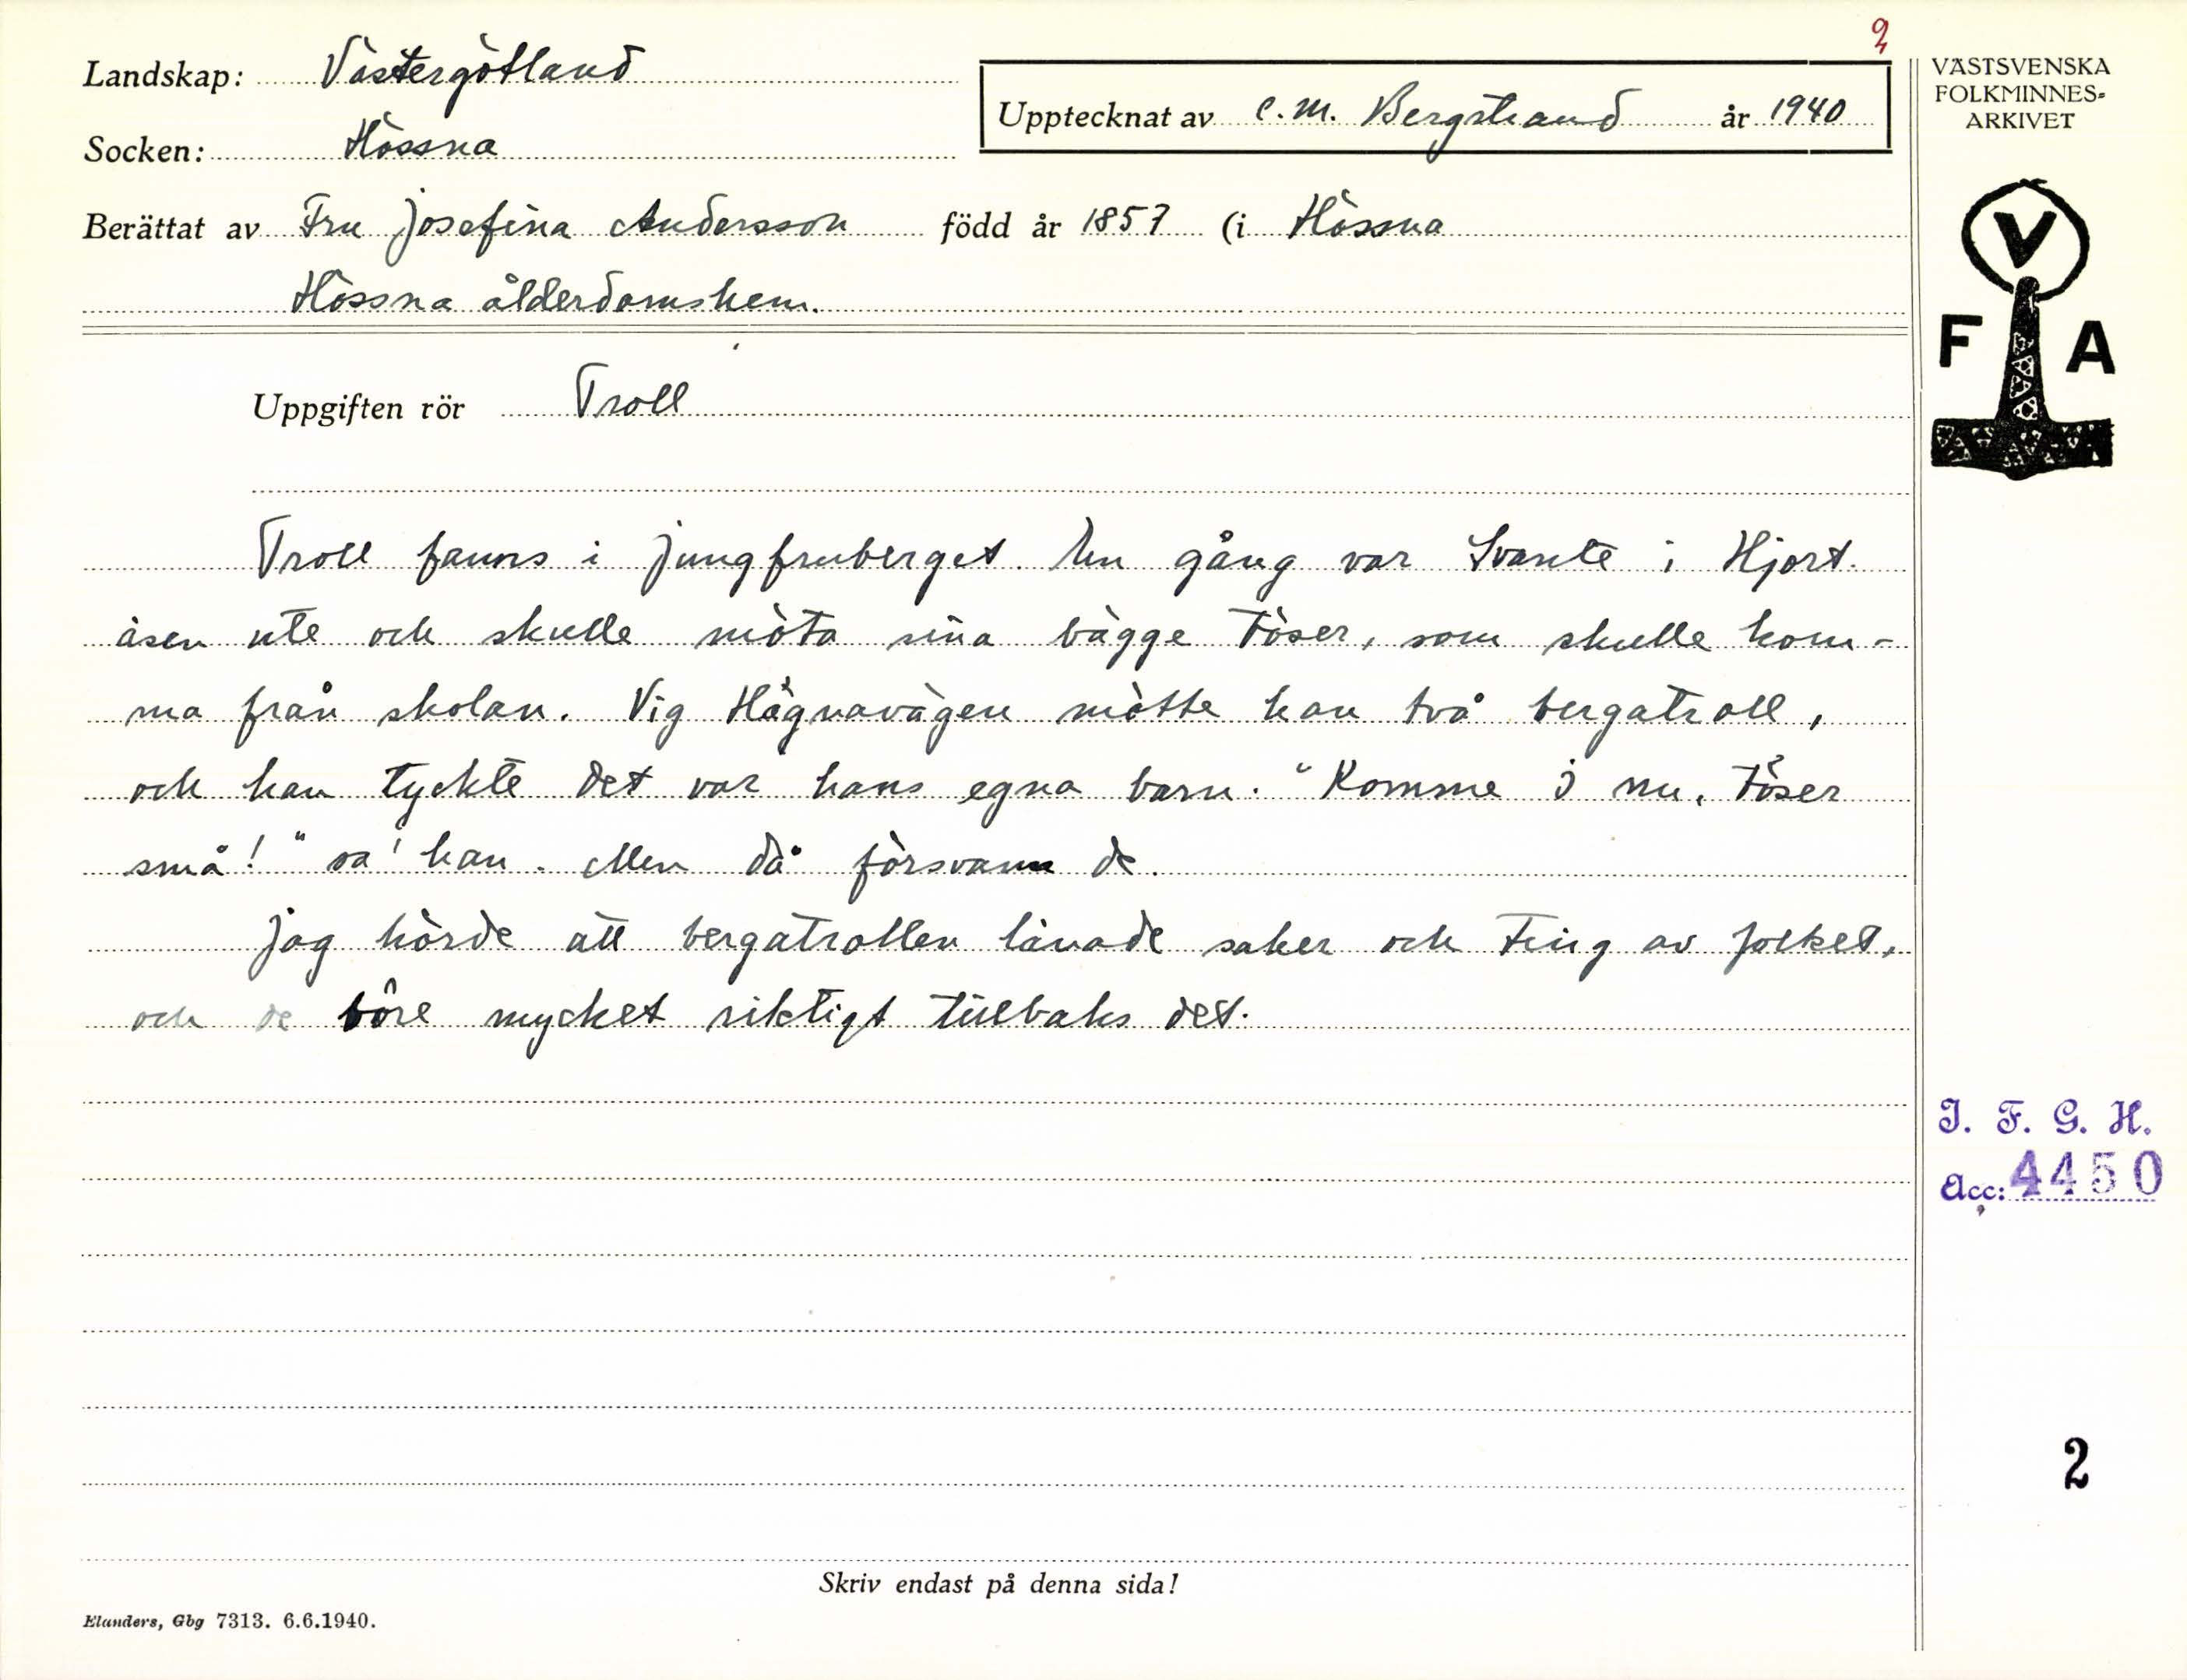 2
Landskap: Västergötland
Socken: Hössna
Upptecknat av C. M. Bergstrand år 1940
Berättat av Fru Josefina Andersson född år 1857 (i Hössna
Hössna ålderdomshem.
Uppgiften rör Troll
Troll fanns i Jungfruberget. En gång var Svante i Hjort-
åsen ute och skulle möta sina bägge töser, som skulle kom-
ma från skolan. Vig Hägnavägen mötte han två bergatroll,
och han tyckte det var hans egna barn. "Komme I nu, töser
små!" sa' han. Men då försvann de.
Jag hörde att bergatrollen lånade saker och ting av folket,
och de böre mycket riktigt tillbaks det.
Skriv endast på denna sida!
Elanders, Gbg 7313. 6.6.1940.
VÄSTSVENSKA
FOLKMINNES-
ARKIVET
V
F A
I. F. G. H.
Acc: 4450
2